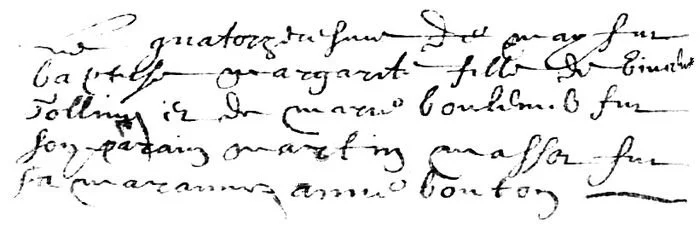 Le quatorziesme de may fut
baptisse margarite fille de
Tollin et de marie fut
son parain martin masson fut
sa maraine anne bouton